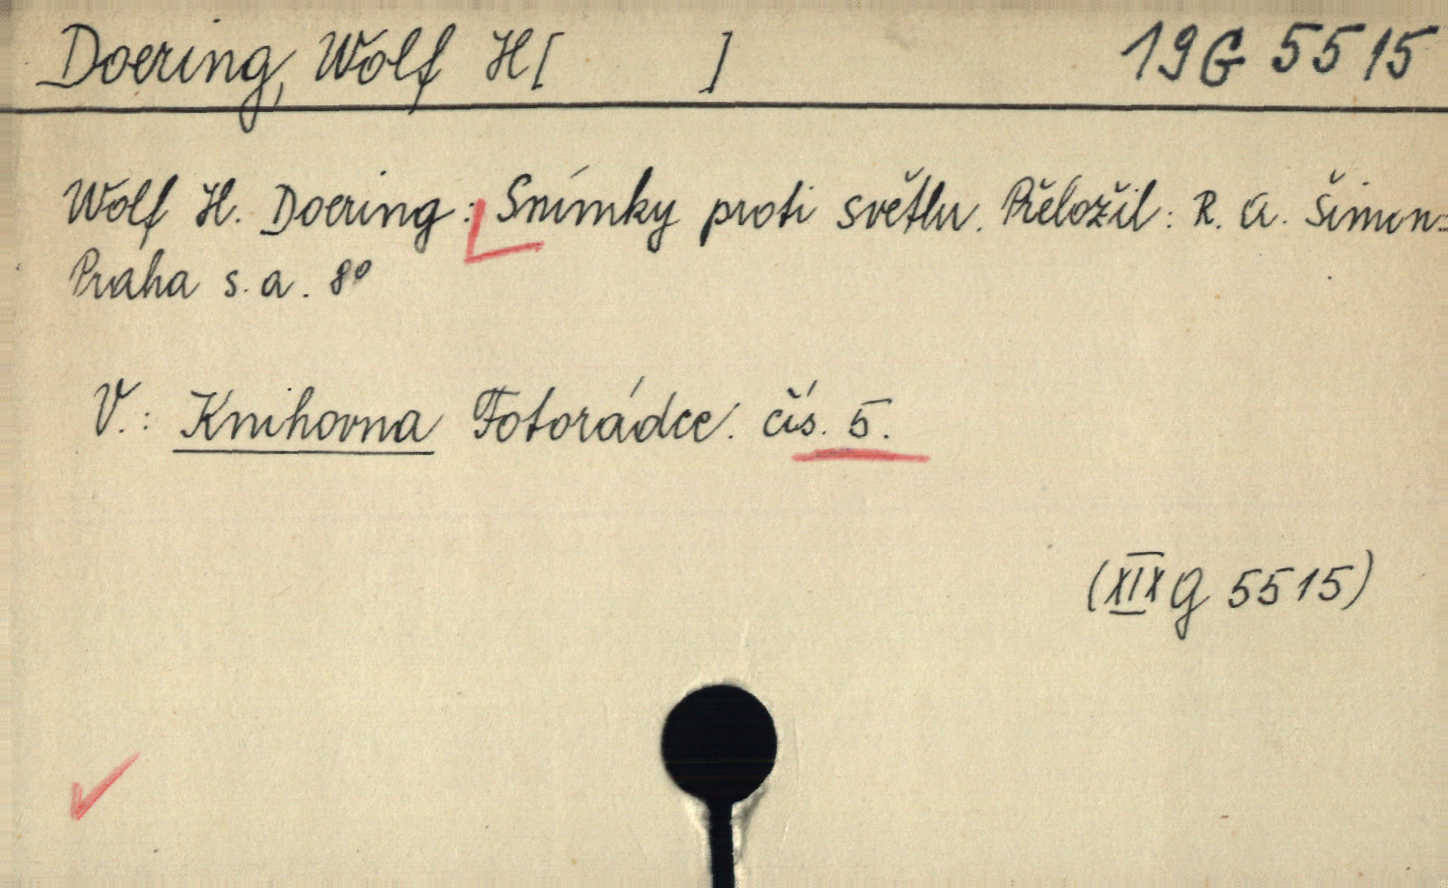 Doering, Wolf H[ ] 19 G 5515
Wolf H. Doering: Snímky proti světlu. Přeložil: R. A. Šimon=
Praha s. a. 8°
V.: Knihovna Fotorádce. čís. 5.
(XIX G 5515)